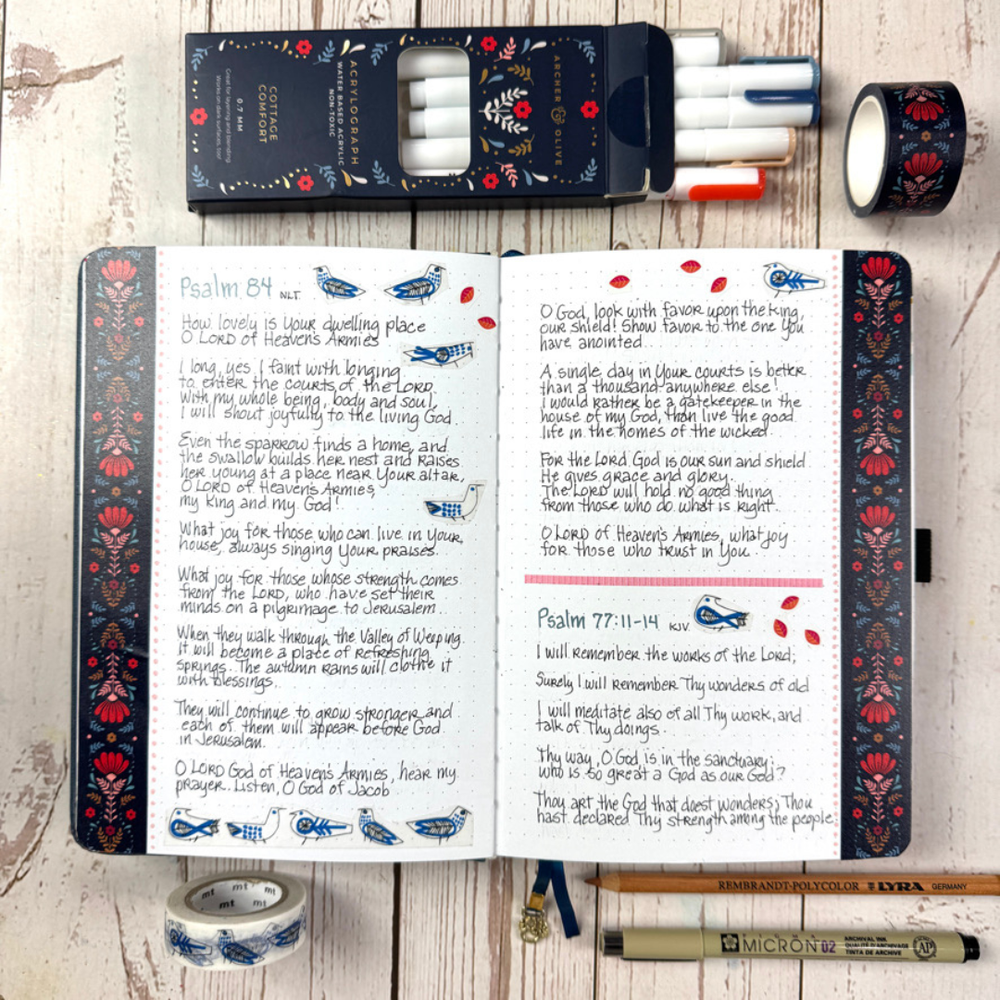 ARCHER & OLIVE
ACRYLOGRAPH
WATER BASED ACRYLIC
NON-TOXIC
COTTAGE
COMFORT
0.7 MM
Great for layering and blending
Works on dark surfaces, too!
Psalm 84 NLT
How lovely is Your dwelling place
O LORD of Heaven's Armies
I long, yes I faint with longing
to enter the courts of the LORD,
With my whole being, body and soul,
I will shout joyfully to the living God.
Even the sparrow finds a home, and
the swallow builds her nest and raises
her young at a place near Your altar,
O LORD of Heaven's Armies,
my King and my God!
What joy for those who can live in Your
house, always singing Your praises.
What joy for those whose strength comes
from the LORD, who have set their
minds on a pilgrimage to Jerusalem.
When they walk through the Valley of Weeping.
It will become a place of refreshing
springs. The autumn rains will clothe it
with blessings.
They will continue to grow stronger and
each of them will appear before God
in Jerusalem.
O LORD God of Heaven's Armies, hear my
prayer. Listen, O God of Jacob
O God, look with favor upon the king,
our shield! Show favor to the one You
have anointed.
A single day in Your courts is better
than a thousand anywhere else!
I would rather be a gatekeeper in the
house of my God, than live the good
life in the homes of the wicked.
For the Lord God is our sun and shield.
He gives grace and glory.
The LORD will hold no good thing
from those who do what is right.
O LORD of Heaven's Armies, what joy
for those who trust in You.
Psalm 77:11-14 KJV
I will remember the works of the Lord;
Surely I will remember Thy wonders of old
I will meditate also of all Thy work, and
talk of Thy doings.
Thy way, O God, is in the sanctuary;
who is so great a God as our God?
Thou art the God that doest wonders; Thou
hast declared Thy strength among the people
mt mt mt
REMBRANDT-POLYCOLOR LYRA GERMANY
MICRON 02
ARCHIVAL INK
QUALITÉ D'ARCHIVAGE
TINTA DE ARCHIVO
AP